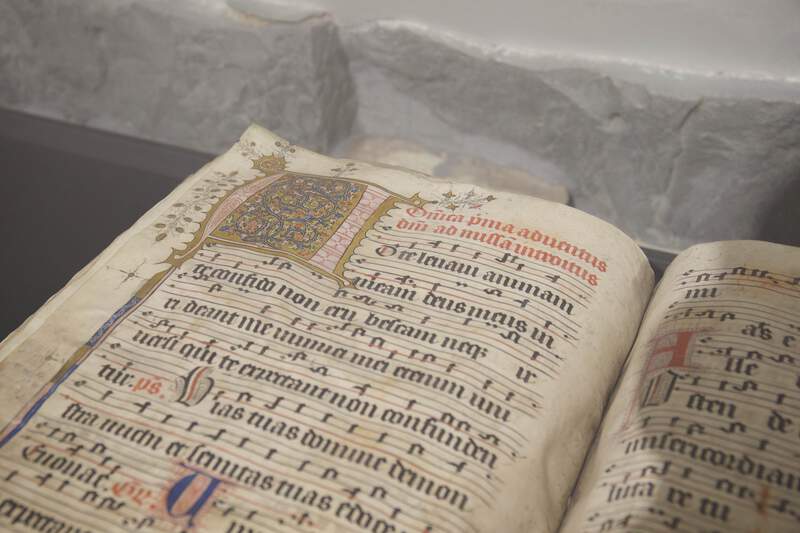 Dnica pma adventus
dni ad missa introitus
D te levavi animam
meam deus meus in
te confido non eru bescam neqz
ir ri deant me inimici mei etenim uni
versi qui te expectant non confunden
tur. ps. Vias tuas domine demon
stra michi et semitas tuas edoce
Euouae Gr. U
expectant
mi
A as e
lle
V sten de
misericordiam
luta re tu